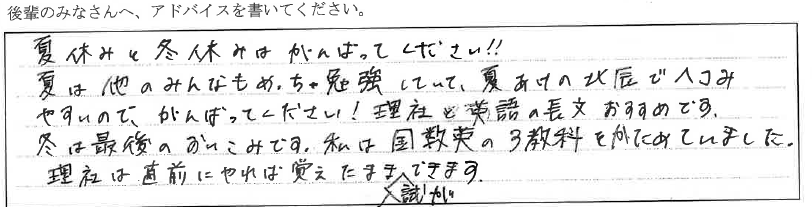 後輩のみなさんへ、アドバイスを書いてください。
夏休みと冬休みはがんばってください!!
夏は他のみんなもめっちゃ勉強していて、夏あけの北辰で凹み
やすいので、がんばってください!理社と英語の長文おすすめです。
冬は最後のおいこみです。私は国数英の3教科をかためていました。
理社は直前にやれば覚えたまま入試ができます。